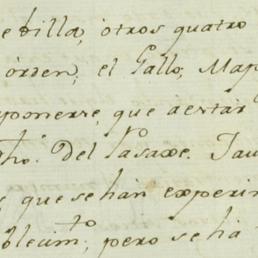 ebilla, otros quatro
órden, el Gallo, Map
ponerse, que aestar
ho. Del Pasaxe. Tau
que se hán experim
blecim.to, pero se há